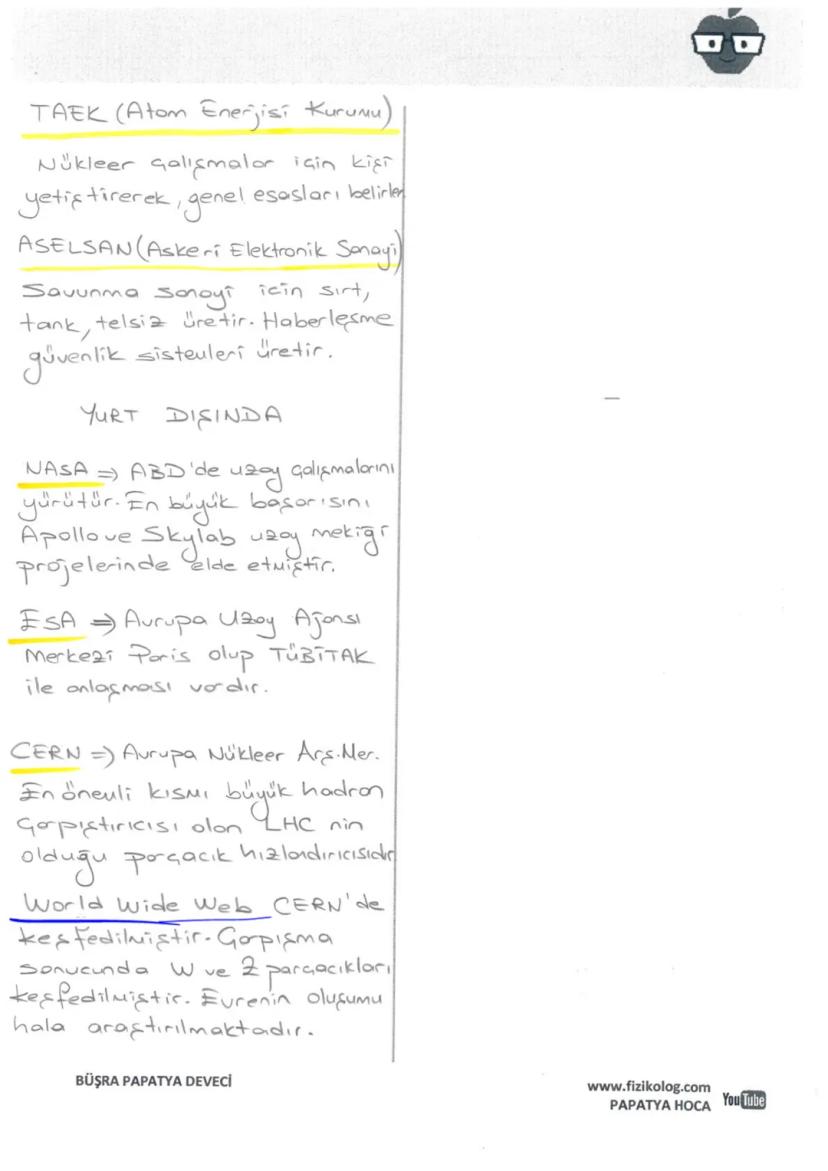 TAEK (Atom Enerjisi Kurumu)
Nükleer çalışmalar için kişi
yetiştirerek, genel esasları belirler
ASELSAN (Askeri Elektronik Sanayi)
Savunma sanayi için sırt,
tank, telsiz üretir. Haberleşme
güvenlik sistemleri üretir.
YURT DIŞINDA
NASA ⇒ ABD'de uzay çalışmalarını
yürütür. En büyük başarısını
Apollo ve Skylab uzay mekiği
projelerinde elde etmiştir.
ESA ⇒ Avrupa Uzay Ajansı
Merkezi Paris olup TÜBİTAK
ile anlaşması vardır.
CERN ⇒ Avrupa Nükleer Arş. Mer.
En önemli kısmı büyük hadron
Çarpıştırıcısı olan LHC nin
olduğu parçacık hızlandırıcısıdır
World Wide Web CERN'de
keşfedilmiştir. Çarpışma
sonucunda W ve Z parçacıkları
keşfedilmiştir. Evrenin oluşumu
hala araştırılmaktadır.
BÜŞRA PAPATYA DEVECİ
www.fizikolog.com
PAPATYA HOCA YouTube